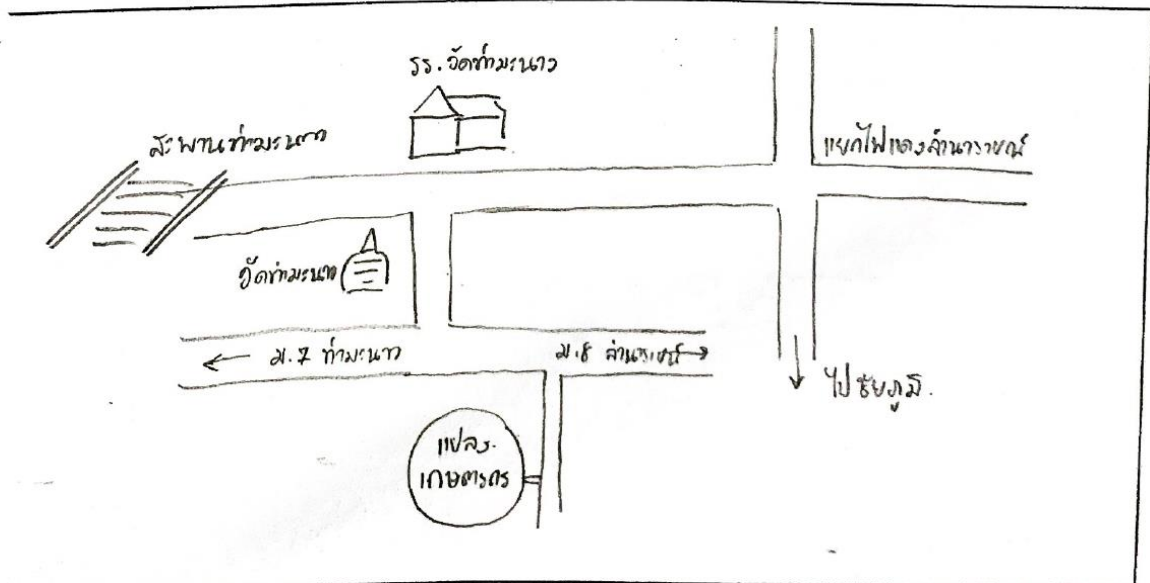 รร.วัดท่ามะนาว
สะพานท่ามะนาว
แยกไฟแดงลำนารายณ์
วัดท่ามะนาว
ม.7 ท่ามะนาว
ม.8 ลำนารายณ์
ไปชัยภูมิ.
แปลง.
เกษตรกร